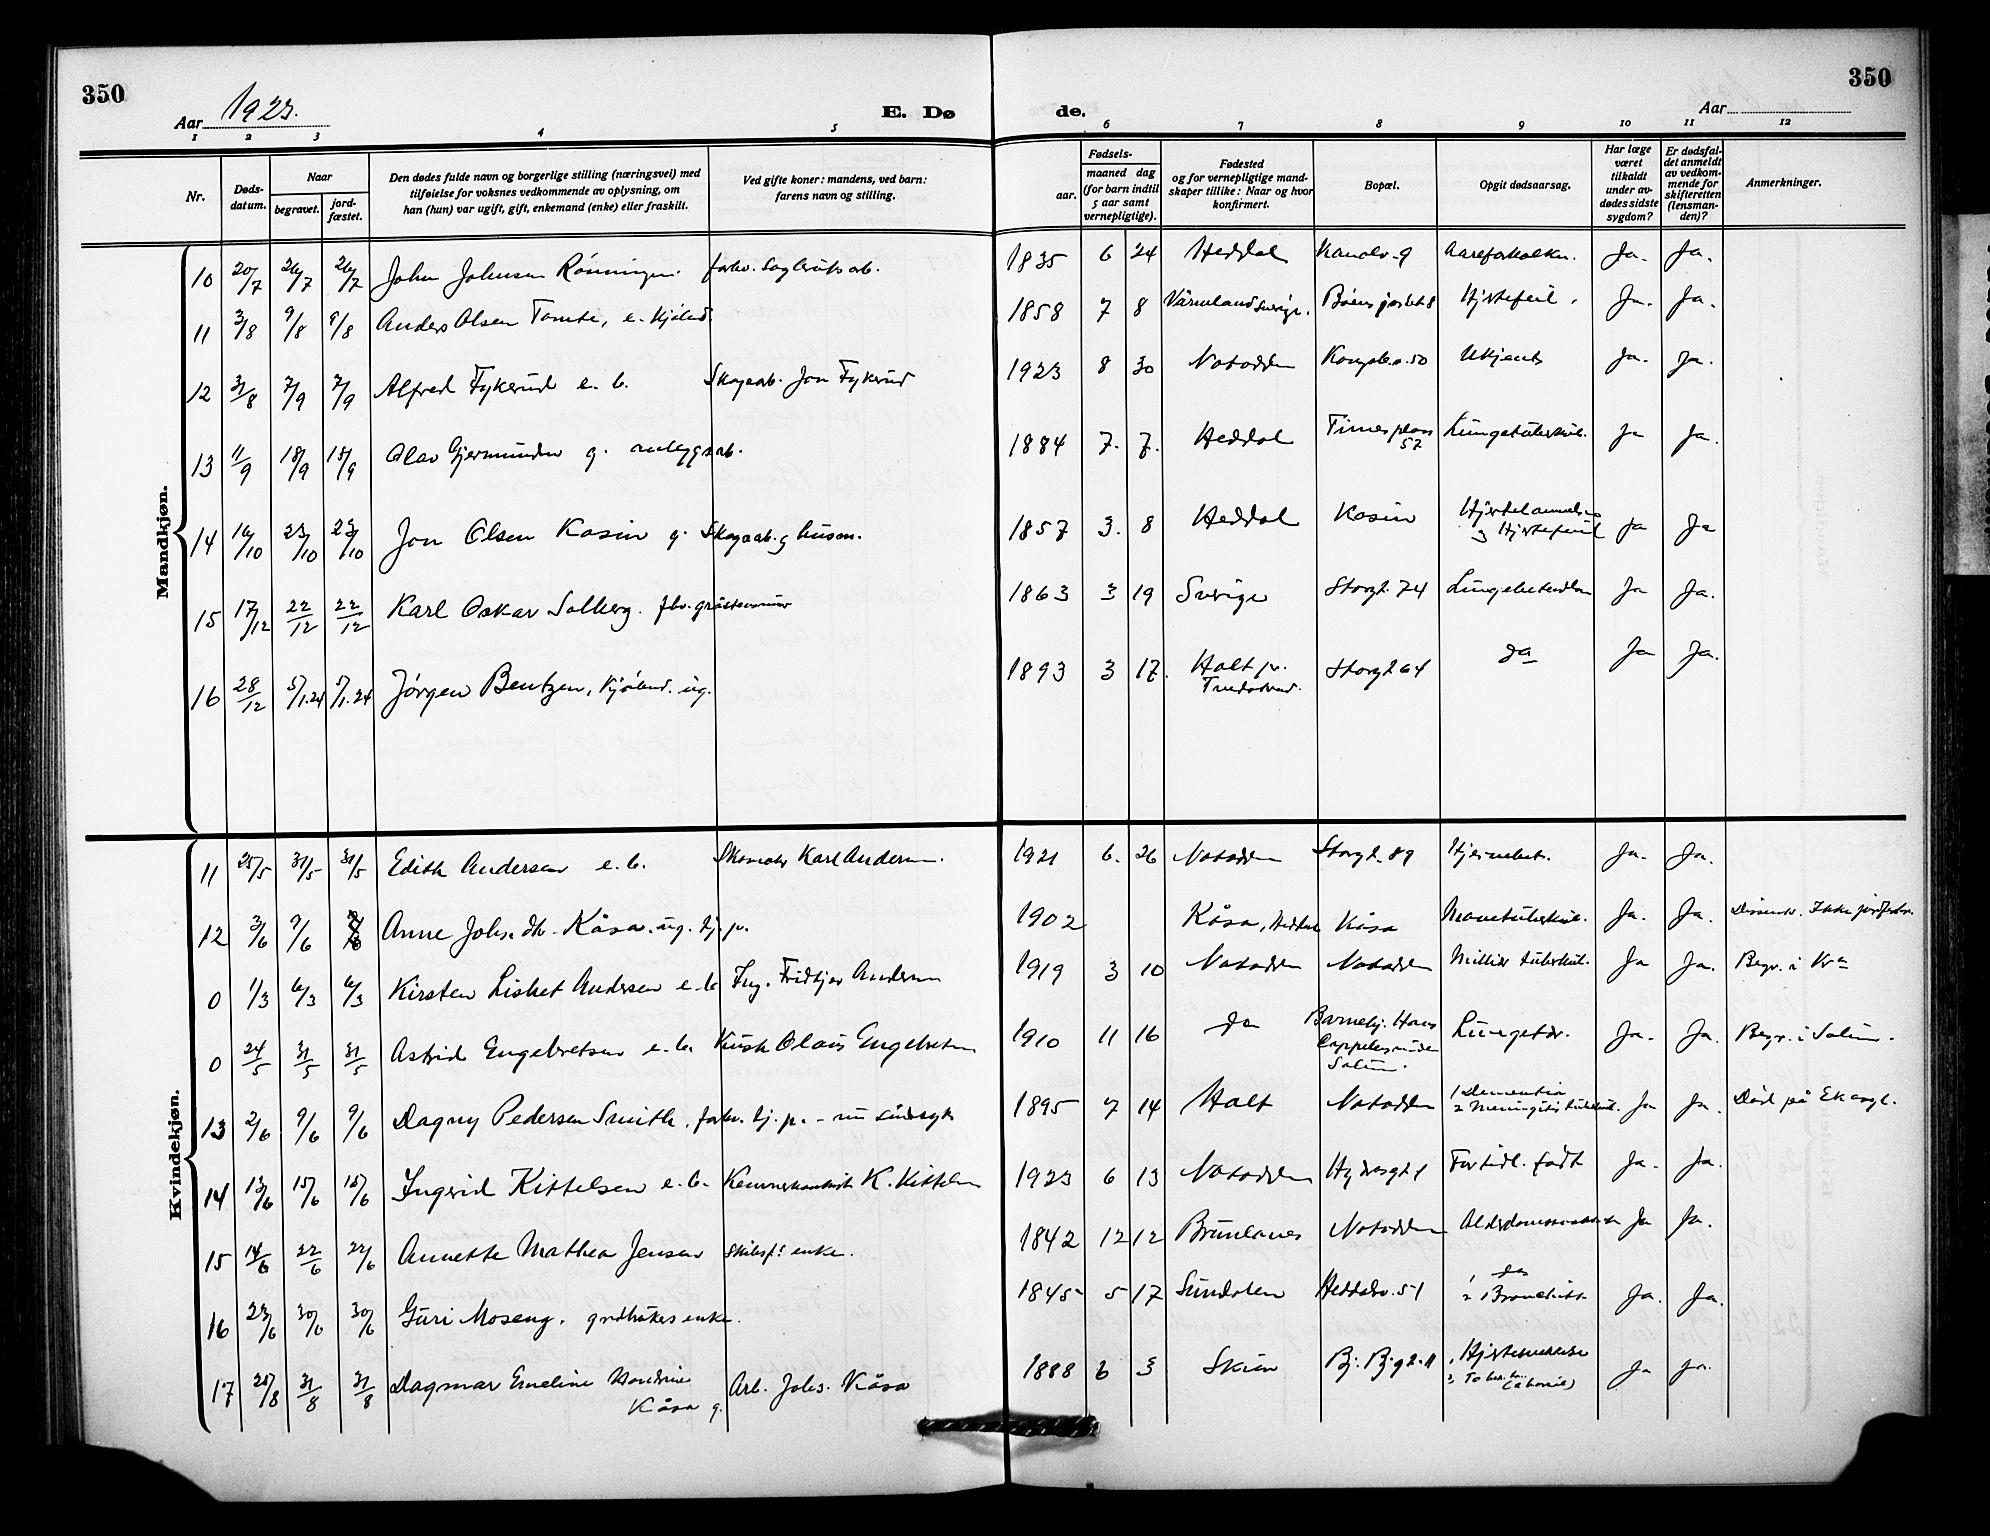 350
350
Aar 1923.
E. Døde.
Aar
1 2 3 4 5 6 7 8 9 10 11 12
Nr.
Døds-
datum.
Naar
begravet.
jord-
fæstet.
Den dødes fulde navn og borgerlige stilling (næringsvei) med
tilføielse for voksnes vedkommende av oplysning, om
han (hun) var ugift, gift, enkemand (enke) eller fraskilt.
Ved gifte koner: mandens, ved barn:
farens navn og stilling.
Fødsels-
aar.
maaned dag
(for barn indtil
5 aar samt
vernepligtige).
Fødested
og for vernepligtige mand-
skaper tillike: Naar og hvor
konfirmert.
Bopæl.
Opgit dødsaarsag.
Har læge
været
tilkaldt
under av-
dødes sidste
sygdom?
Er dødsfal-
det anmeldt
av vedkom-
mende for
skifteretten
(lensman-
den)?
Anmerkninger.
Mandkjøn.
10 20/7 26/7 26/7 John Johnsen Rönningen. forhv. Sagbruksarb. 1835 6 24 Heddal Kanalv. 9 Aareforkalkn. Ja. Ja.
11 3/8 9/8 9/8 Anders Olsen Tomte, e. Kjøbmd. 1858 7 8 Värmland Sverige. Hjertefeil. Ja. Ja.
12 31/8 7/9 7/9 Alfred Fykerud e. b. Skogsarb. Jon Fykerud 1923 8 30 Notodden Kongsb.v. 50 Ukjent Ja. Ja.
13 11/9 18/9 18/9 Olav Gjermundsen g. anleggsarb. 1884 7. 7. Heddal Tinnesplass
57 Lungetuberkul. Ja Ja.
14 16/10 23/10 23/10 Jon Olsen Kasin g. Skogsarb. g husm. 1857 3. 8 Heddal Kasin Hjertelammelse
og Hjertefeil Ja Ja
15 17/12 22/12 22/12 Karl Oskar Solberg. fhv. gråstensmurer 1863 3 19 Sverige Storgt. 74 Lungebetendelse Ja Ja.
16 28/12 5/1.24 5/1.24 Jørgen Bentzen, Kjøbmd. ug. 1893 3 17. Holt pr.
Tvedestrand. Storgt 64 da Ja Ja.
Kvindekjøn.
11 25/5 31/5 31/5 Edith Andersen e. b. Skomaker Karl Andersen. 1921 6. 26 Notodden Storgt. 89 Hjernebet. Ja. Ja.
12 3/6 9/6 Anne Johs. dtr. Kåsa. ug. tj. p. 1902 Kåsa, Heddal Kåsa Mavetuberkul. Ja. Ja. Dissenter. Ikke jordfestet.
0 1/3 6/3 6/3 Kirsten Lisbet Andersen e. b. Ing. Fridtjov Andersen 1919 3 10 Notodden Notodden Milliær tuberkul. Ja Ja. Begr. i Kra
0 24/5 31/5 31/5 Astrid Engebretsen e. b. Kusk Olaus Engebretsen 1910 11 16 da Barnehj. Hans
Cappelens minde
Solum. Lungetbr. Ja. Ja. Begr. i Solum.
13 2/6 9/6 9/6 Dagny Pedersen Smith, forhv. tj. p. - nu sindsyk 1895 7 14 Holt Notodden 1 Dementia
2 Meningitis tuberkul. Ja Ja. Död på Ek asyl.
14 13/6 15/6 15/6 Ingrid Kittelsen e. b. Kemnerkontorist K. Kittelsen 1923 6 13 Notodden Hydrosgt 1 For tidl. født Ja. Ja.
15 14/6 22/6 22/6 Annette Mathea Jensen skibsf. enke. 1842 12 12 Brunlanes Notodden Alderdomssvakhet Ja Ja.
16 23/6 30/6 30/6 Guri Moseng. grdbrukers enke. 1845 5 17 Sundalen Heddalsv. 51 1 da
2 Bronchitt Ja. Ja.
17 25/8 31/8 31/8 Dagmar Emeline
Kåsa g. Arb. Johs. Kåsa 1888 6 3 Skien Bj. Bj gt. 11 1 Hjertelammelse
2 Ja Ja.